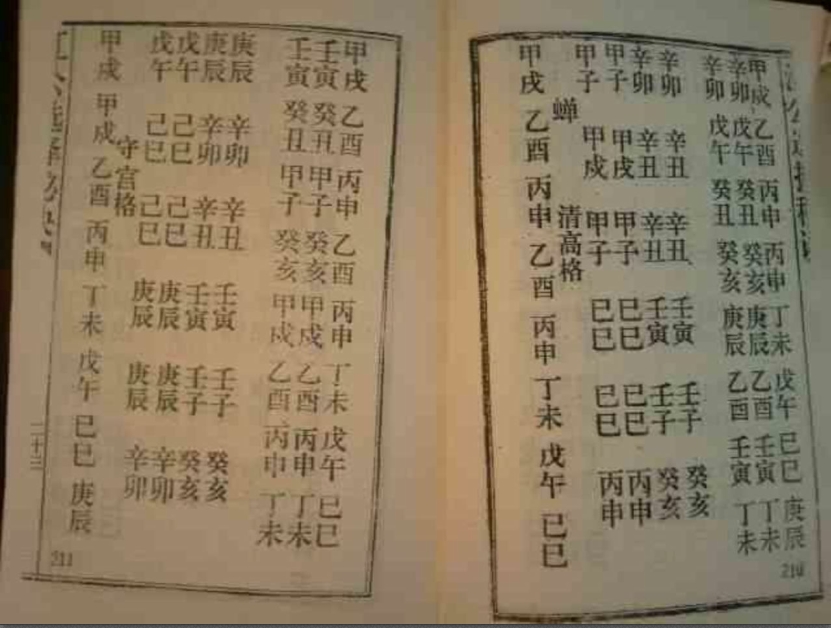 甲戌 乙酉 丙申 丙申 丁未 戊午 己巳 庚辰
辛卯 戊午 癸丑 癸亥 庚辰 乙酉 壬寅 丁未
辛卯 戊午 癸丑 癸亥 庚辰 乙酉 壬寅 丁未
辛卯 辛丑 辛丑 壬寅 壬子 癸亥
辛卯 辛丑 辛丑 壬寅 壬子 癸亥
甲子 甲戌 甲子 巳巳 巳巳 丙申
甲子 甲戌 甲子 巳巳 巳巳 丙申
蝉 清高格
甲戌 乙酉 丙申 乙酉 丙申 丁未 戊午 巳巳
210
甲戌 乙酉 丙申 乙酉 丙申 丁未 戊午 巳巳
壬寅 癸丑 甲子 癸亥 甲戌 乙酉 丙申 丁未
壬寅 癸丑 甲子 癸亥 甲戌 乙酉 丙申 丁未
庚辰 辛卯 辛丑 壬寅 壬子 癸亥
庚辰 辛卯 辛丑 壬寅 壬子 癸亥
戊午 己巳 己巳 庚辰 庚辰 辛卯
戊午 己巳 己巳 庚辰 庚辰 辛卯
守宫格
甲戌 甲戌 乙酉 丙申 丁未 戊午 巳巳 庚辰
二十三
211